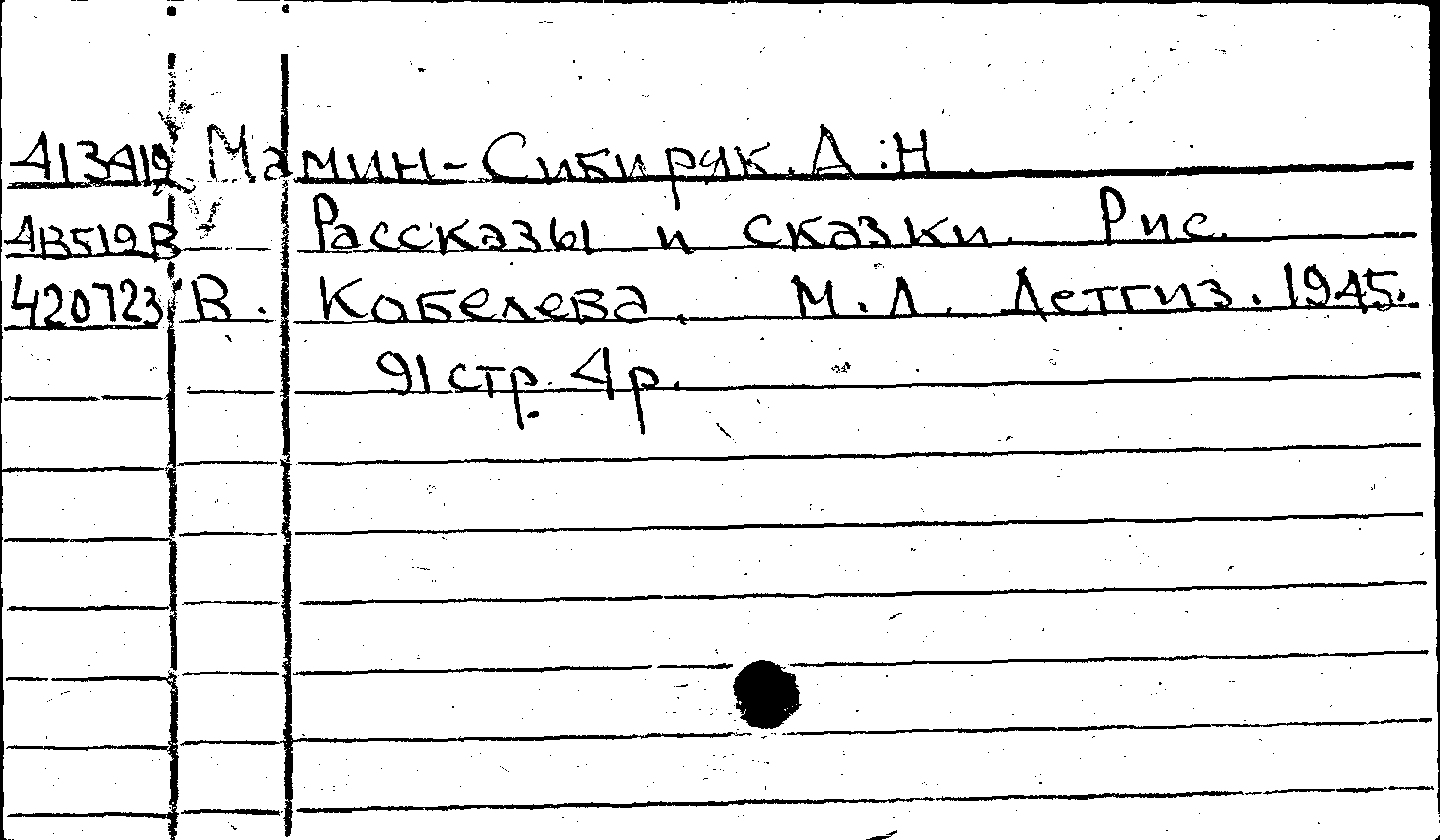 413419 Мамин-Сибиряк.Д.Н.
413519В Рассказы и сказки. Рис.
420723 В. Кобелева. М.Л. Детгиз. 1945.
91 стр. 4р.